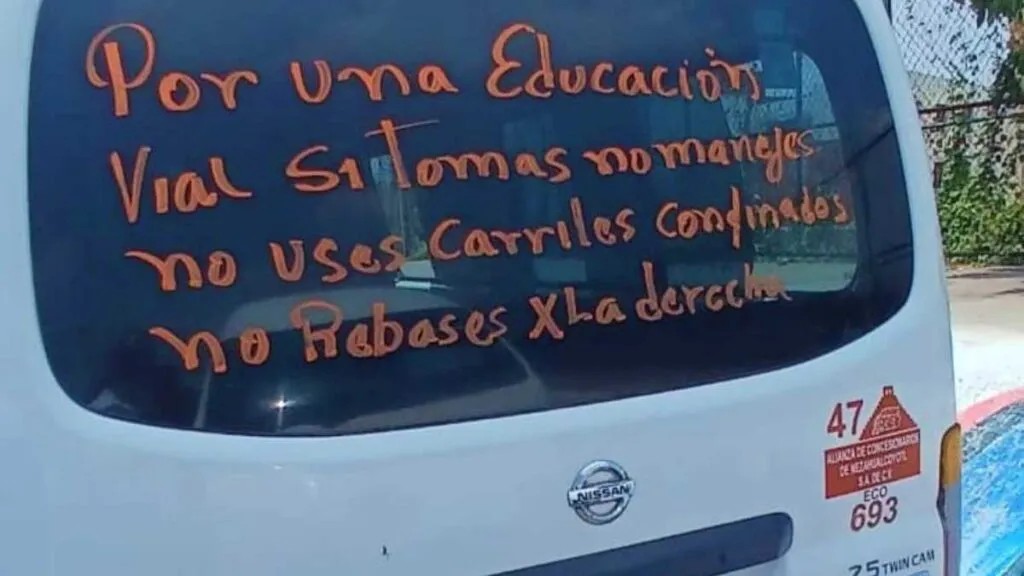 Por una Educación
Vial Si Tomas no manejes
no uses Carriles confinados
no Rebases X La derecha
47
ALIANZA DE CONCESIONARIOS
DE NEZAHUALCOYOTL
S.A. DE C.V.
ECO
693
NISSAN
2.5 TWIN CAM